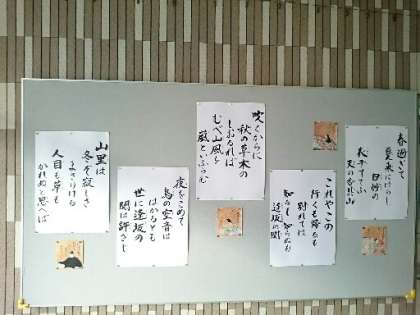 春過ぎて
夏来にけらし
白妙の
衣干すてふ
天の香具山
これやこの
行くも帰るも
別れては
知るも知らぬも
逢坂の関
吹くからに
秋の草木の
しおるれば
むべ山風を
嵐といふらむ
夜をこめて
鳥の空音は
はかるとも
世に逢坂の
関は許さじ
山里は
冬ぞ寂しさ
まさりける
人目も草も
かれぬと思へば